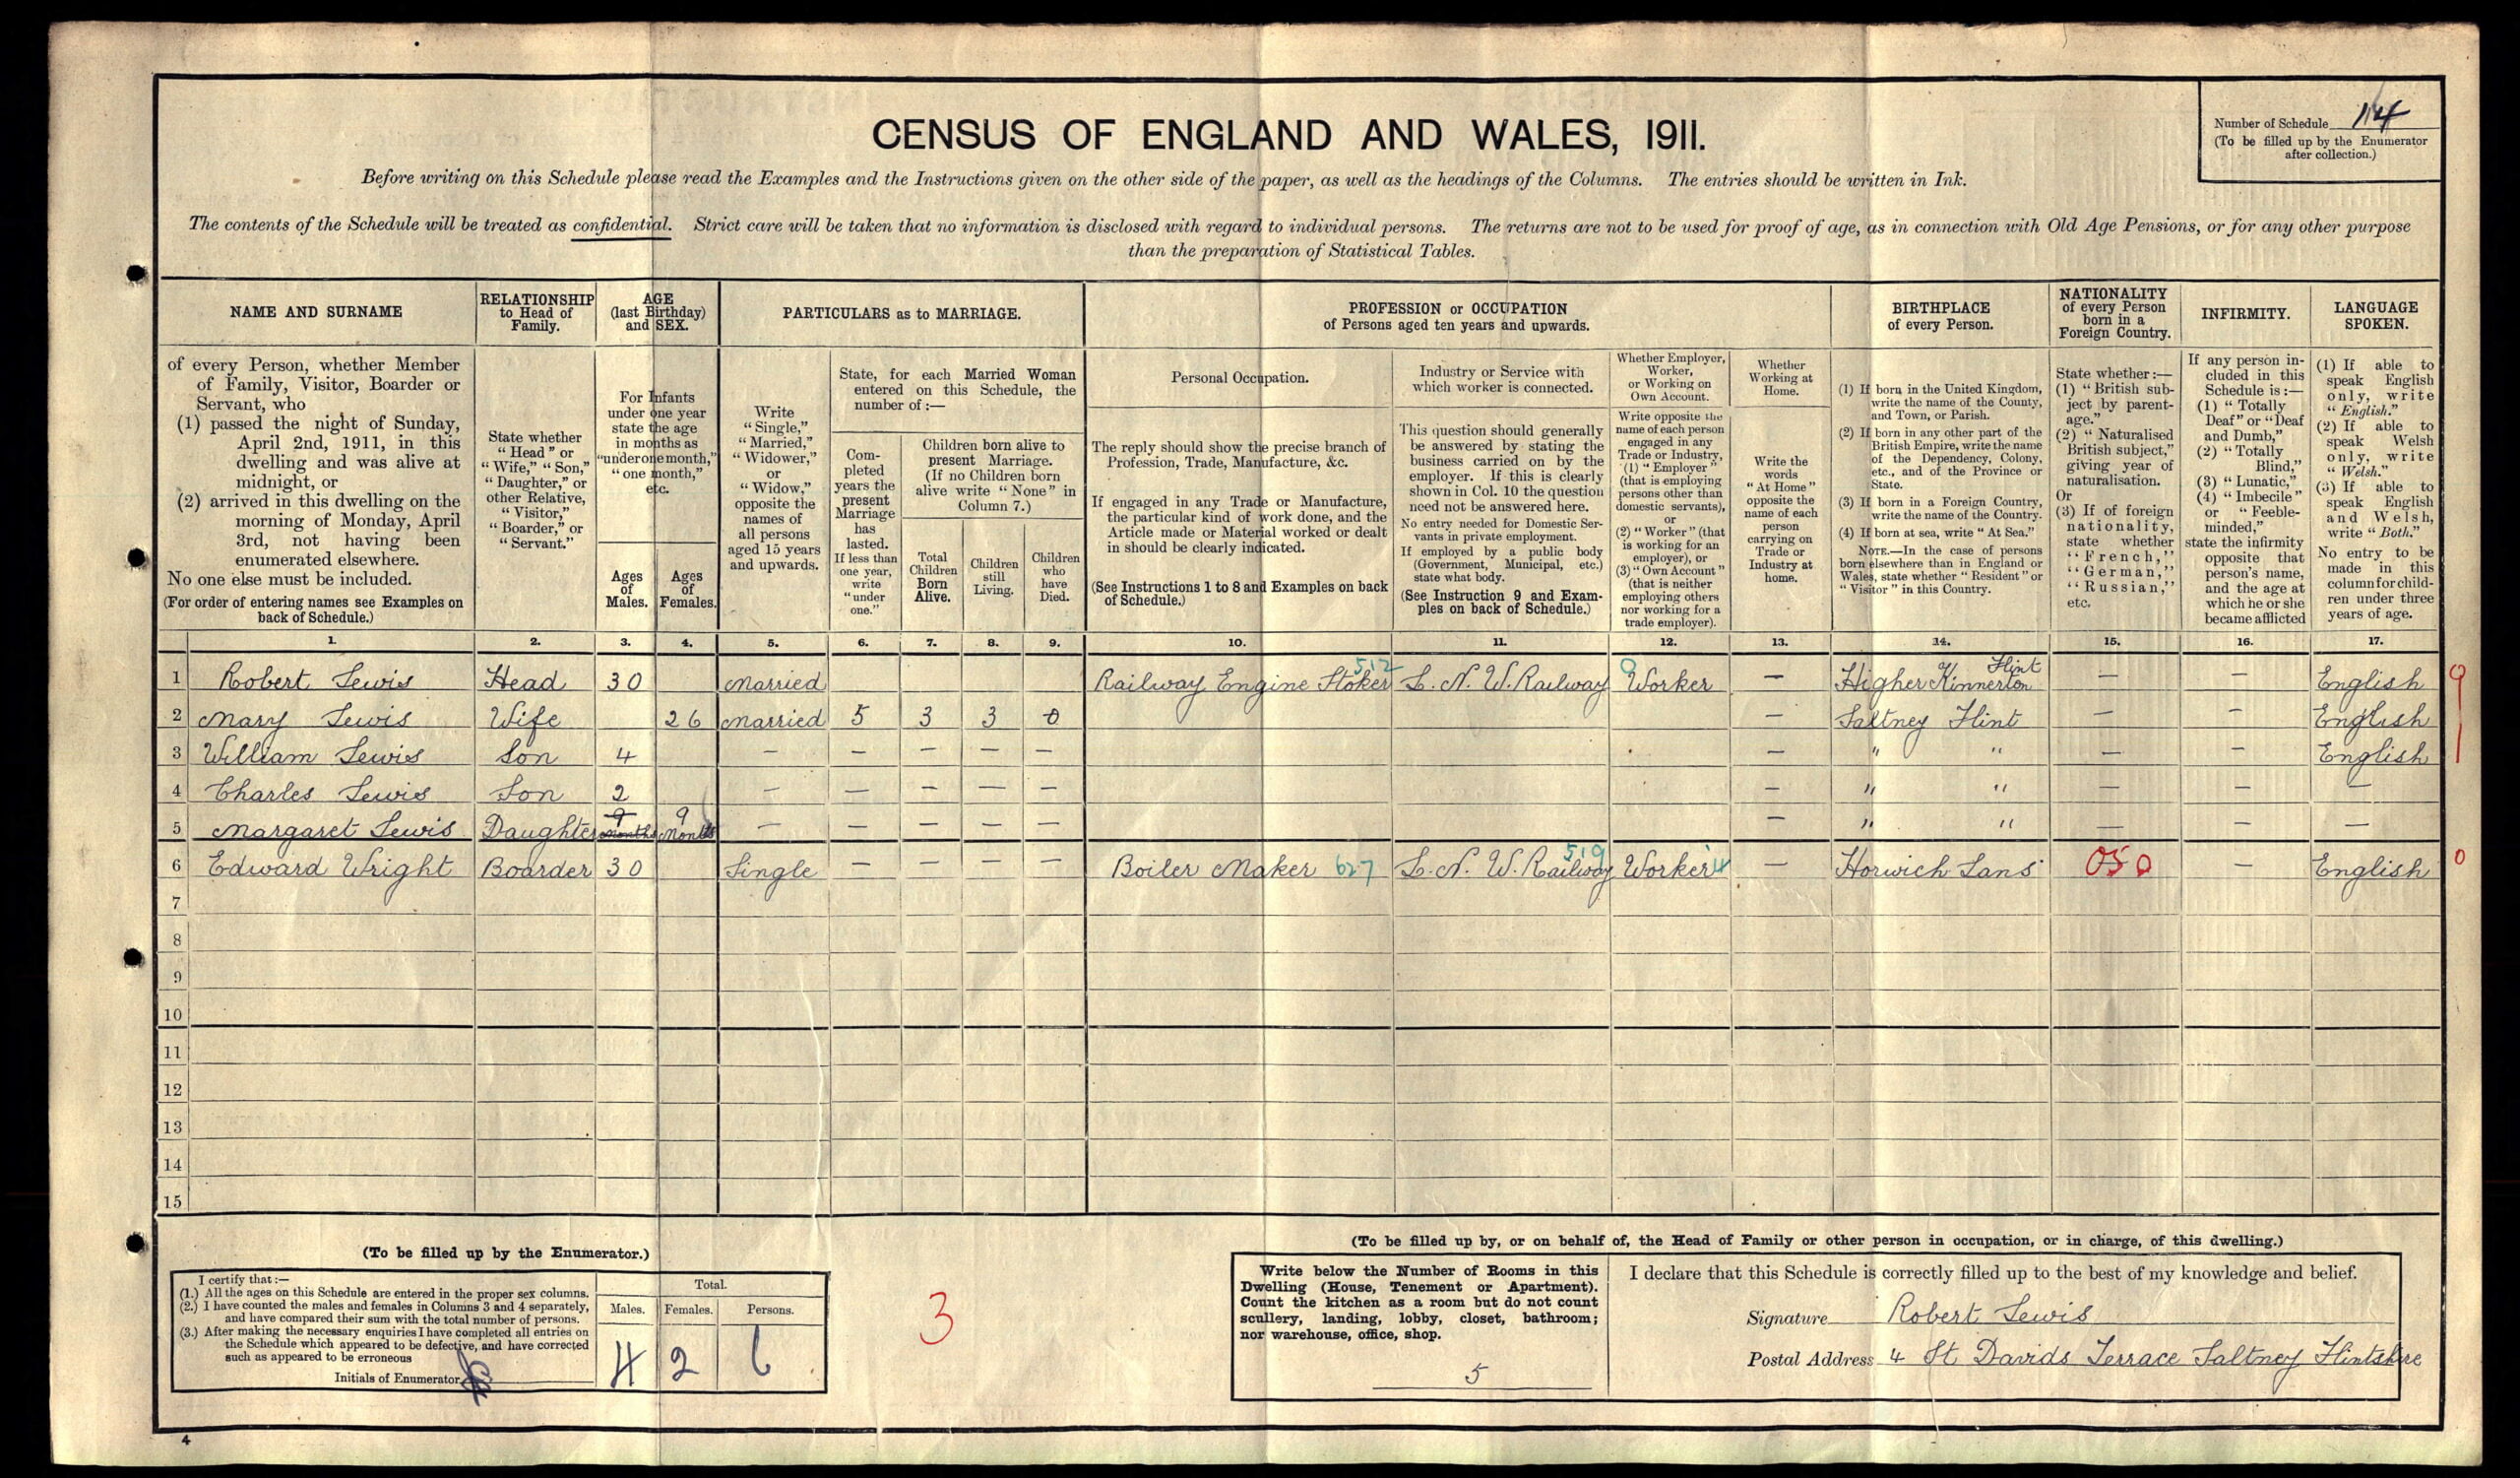 CENSUS OF ENGLAND AND WALES, 1911.
Number of Schedule 114
(To be filled up by the Enumerator
after collection.)
Before writing on this Schedule please read the Examples and the Instructions given on the other side of the paper, as well as the headings of the Columns. The entries should be written in Ink.
The contents of the Schedule will be treated as confidential. Strict care will be taken that no information is disclosed with regard to individual persons. The returns are not to be used for proof of age, as in connection with Old Age Pensions, or for any other purpose
than the preparation of Statistical Tables.
NAME AND SURNAME
of every Person, whether Member
of Family, Visitor, Boarder or
Servant, who
(1) passed the night of Sunday,
April 2nd, 1911, in this
dwelling and was alive at
midnight, or
(2) arrived in this dwelling on the
morning of Monday, April
3rd, not having been
enumerated elsewhere.
No one else must be included.
(For order of entering names see Examples on
back of Schedule.)
RELATIONSHIP
to Head of
Family.
State whether
"Head" or
"Wife," "Son,"
"Daughter," or
other Relative,
"Visitor,"
"Boarder," or
"Servant."
AGE
(last Birthday)
and SEX.
For Infants
under one year
state the age
in months as
"under one month,"
"one month,"
etc.
Ages
of
Males.
Ages
of
Females.
PARTICULARS as to MARRIAGE.
Write
"Single,"
"Married,"
"Widower,"
or
"Widow,"
opposite the
names of
all persons
aged 15 years
and upwards.
State, for each Married Woman
entered on this Schedule, the
number of:—
Com-
pleted
years the
present
Marriage
has
lasted.
If less than
one year,
write
"under
one."
Children born alive to
present Marriage.
(If no Children born
alive write "None" in
Column 7.)
Total
Children
Born
Alive.
Children
still
Living.
Children
who
have
Died.
PROFESSION or OCCUPATION
of Persons aged ten years and upwards.
Personal Occupation.
The reply should show the precise branch of
Profession, Trade, Manufacture, &c.
If engaged in any Trade or Manufacture,
the particular kind of work done, and the
Article made or Material worked or dealt
in should be clearly indicated.
(See Instructions 1 to 8 and Examples on back
of Schedule.)
Industry or Service with
which worker is connected.
This question should generally
be answered by stating the
business carried on by the
employer. If this is clearly
shown in Col. 10 the question
need not be answered here.
No entry needed for Domestic Ser-
vants in private employment.
If employed by a public body
(Government, Municipal, etc.)
state what body.
(See Instruction 9 and Exam-
ples on back of Schedule.)
Whether Employer,
Worker,
or Working on
Own Account.
Write opposite the
name of each person
engaged in any
Trade or Industry,
(1) "Employer"
(that is employing
persons other than
domestic servants),
or
(2) "Worker" (that
is working for an
employer), or
(3) "Own Account"
(that is neither
employing others
nor working for a
trade employer).
Whether
Working at
Home.
Write the
words
"At Home"
opposite the
name of each
person
carrying on
Trade or
Industry at
home.
BIRTHPLACE
of every Person.
(1) If born in the United Kingdom,
write the name of the County,
and Town, or Parish.
(2) If born in any other part of the
British Empire, write the name
of the Dependency, Colony,
etc., and of the Province or
State.
(3) If born in a Foreign Country,
write the name of the Country.
(4) If born at sea, write "At Sea."
NOTE.—In the case of persons
born elsewhere than in England or
Wales, state whether "Resident" or
"Visitor" in this Country.
NATIONALITY
of every Person
born in a
Foreign Country.
State whether:—
(1) "British sub-
ject by parent-
age."
(2) "Naturalised
British subject,"
giving year of
naturalisation.
Or
(3) If of foreign
nationality,
state whether
"French,"
"German,"
"Russian,"
etc.
INFIRMITY.
If any person in-
cluded in this
Schedule is:—
(1) "Totally
Deaf" or "Deaf
and Dumb,"
(2) "Totally
Blind,"
(3) "Lunatic,"
(4) "Imbecile"
or "Feeble-
minded,"
state the infirmity
opposite that
person's name,
and the age at
which he or she
became afflicted
LANGUAGE
SPOKEN.
(1) If able to
speak English
only, write
"English."
(2) If able to
speak Welsh
only, write
"Welsh."
(3) If able to
speak English
and Welsh,
write "Both."
No entry to be
made in this
column for child-
ren under three
years of age.
1. 2. 3. 4. 5. 6. 7. 8. 9. 10. 11. 12. 13. 14. 15. 16. 17.
1 Robert Lewis Head 30 Married Railway Engine Stoker 512 L. N. W. Railway Worker — Higher Kinnerton Flint — — English 9
2 Mary Lewis Wife 26 Married 5 3 3 0 — Saltney Flint — — English 1
3 William Lewis Son 4 — — — — — — " " — — English
4 Charles Lewis Son 2 — — — — — — " " — — —
5 Margaret Lewis Daughter 9 months 9 months — — — — — — " " — — —
6 Edward Wright Boarder 30 Single — — — — Boiler Maker 627 L. N. W. Railway 519 Worker — Horwich Lans 050 — English 0
7
8
9
10
11
12
13
14
15
(To be filled up by the Enumerator.)
I certify that:—
(1.) All the ages on this Schedule are entered in the proper sex columns.
(2.) I have counted the males and females in Columns 3 and 4 separately,
and have compared their sum with the total number of persons.
(3.) After making the necessary enquiries I have completed all entries on
the Schedule which appeared to be defective, and have corrected
such as appeared to be erroneous
Initials of Enumerator
Total.
Males. Females. Persons.
4 2 6
3
(To be filled up by, or on behalf of, the Head of Family or other person in occupation, or in charge, of this dwelling.)
Write below the Number of Rooms in this
Dwelling (House, Tenement or Apartment).
Count the kitchen as a room but do not count
scullery, landing, lobby, closet, bathroom;
nor warehouse, office, shop.
5
I declare that this Schedule is correctly filled up to the best of my knowledge and belief.
Signature Robert Lewis
Postal Address 4 St Davids Terrace Saltney Flintshire
4